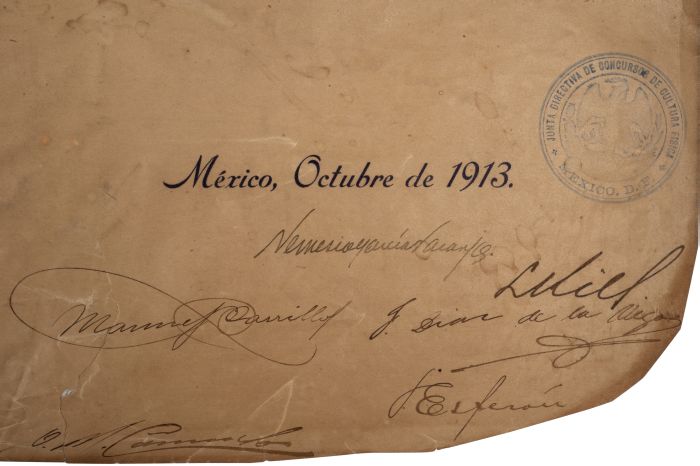 JUNTA DIRECTIVA DE CONCURSOS DE CULTURA FISICA
MEXICO, D. F.
México, Octubre de 1913.
Nemesio García Naranjo
Manuel Carrillo
J. Diaz de la Vega